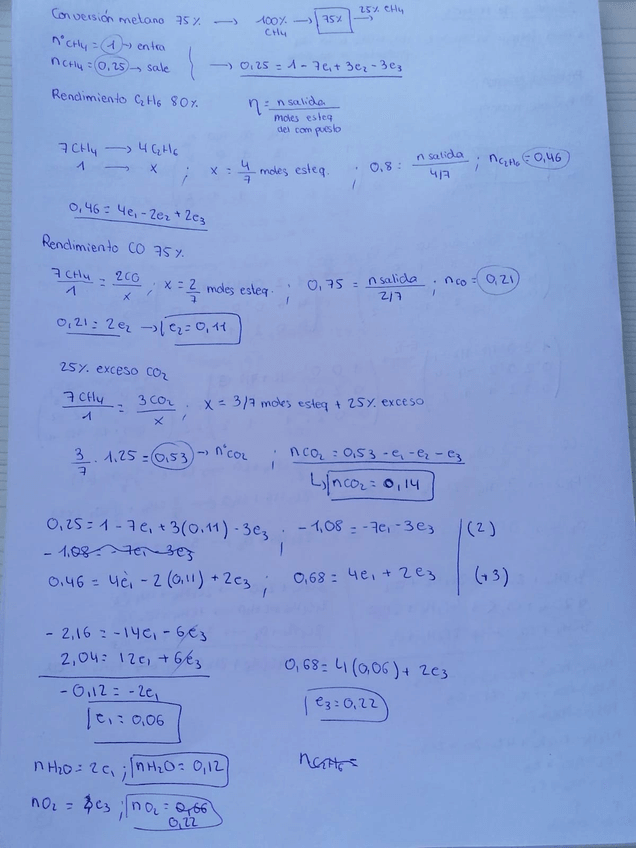 Conversión metano 75% → 100% CH4 → 75% → 25% CH4
n°CH4 = 1 → entra
nCH4 = 0,25 → sale } → 0,25 = 1 - 7e1 + 3e2 - 3e3
Rendimiento C2H6 80% η = n salida / moles esteq del compuesto
7CH4 → 4C2H6
1 → x ; x = 4/7 moles esteq. ; 0,8 = n salida / 4/7 ; nC2H6 = 0,46
0,46 = 4e1 - 2e2 + 2e3
Rendimiento CO 75%
7CH4/1 = 2CO/x ; x = 2/7 moles esteq. ; 0,75 = n salida / 2/7 ; nCO = 0,21
0,21 = 2e2 → e2 = 0,11
25% exceso CO2
7CH4/1 = 3CO2/x ; x = 3/7 moles esteq + 25% exceso
3/7 · 1.25 = 0,53 → n°CO2 ; nCO2 = 0,53 - e1 - e2 - e3
↳ nCO2 = 0,14
0,25 = 1 - 7e1 + 3(0,11) - 3e3 ; -1,08 = -7e1 - 3e3 | (2)
-1,08 = -7e1 - 3e3
0,46 = 4e1 - 2(0,11) + 2e3 ; 0,68 = 4e1 + 2e3 | (·3)
-2,16 = -14e1 - 6e3
2,04 = 12e1 + 6e3
0,68 = 4(0,06) + 2e3
-0,12 = -2e1
e3 = 0,22
e1 = 0,06
nH2O = 2e1 ; nH2O = 0,12
nC2H6 =
nO2 = e3 ; nO2 = 0,66
0,22